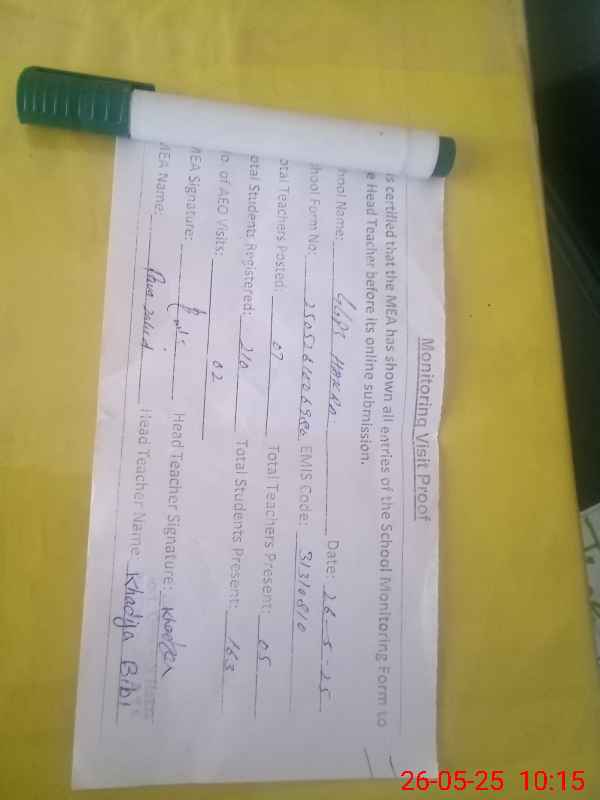 Monitoring Visit Proof
is certified that the MEA has shown all entries of the School Monitoring Form to
e Head Teacher before its online submission.
hool Name: GGPS Date: 26-5-25
hool Form No: EMIS Code: 31310810
otal Teachers Posted: 07 Total Teachers Present: 05
otal Students Registered: 210 Total Students Present: 163
o. of AEO Visits: 02
MEA Signature: Head Teacher Signature: Khadija
MEA Name: Head Teacher Name: Khadija Bibi
26-05-25 10:15